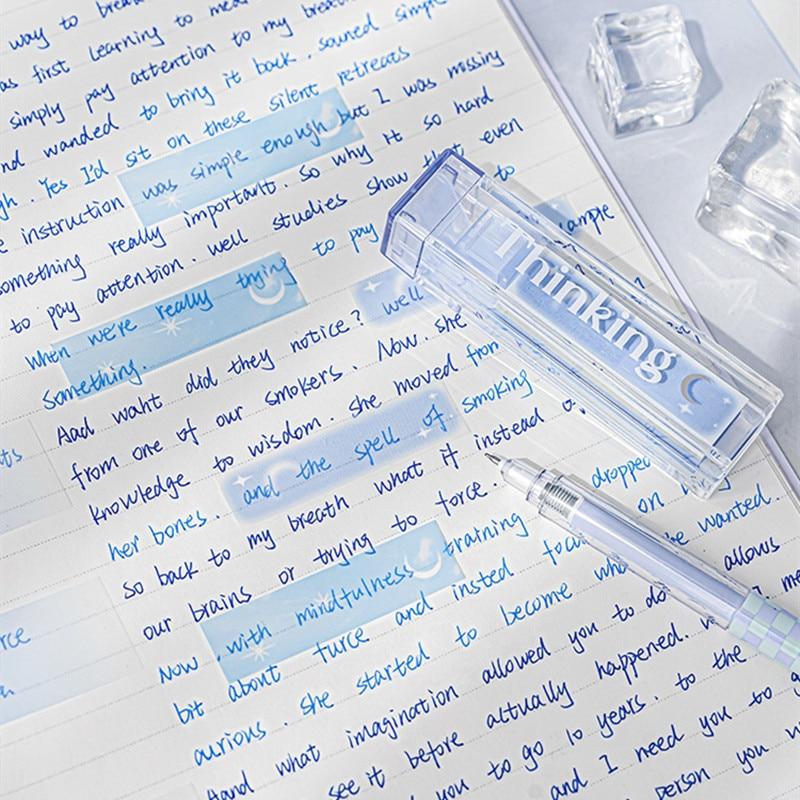 way to brea
as first learning to me
simply pay attention to my brea
nd wanded to bring it back. souned simple
gh. Yes I'd sit on these silent retreats
e instruction was simple enough but I was missing
something really important. So why it so hard
to pay attention. well studies show that even
when we're really trying to pay
to
ample
something.
well
Aad waht did they notice?
from one of our smokers. Now. she
knowledge to wisdom. she moved from
her bones. and the spell of smoking
so back to my breath what if instead o
our brains or trying to force.
dropped
Now .with mindfulness training
on
bit about furce and insted focu
be wanted.
curious. she started to become
allows
And what imagination allowed you to do
see it before actually happened.
you to go 10 years. to the
and I need you to
person you
Thinking
ts
rce